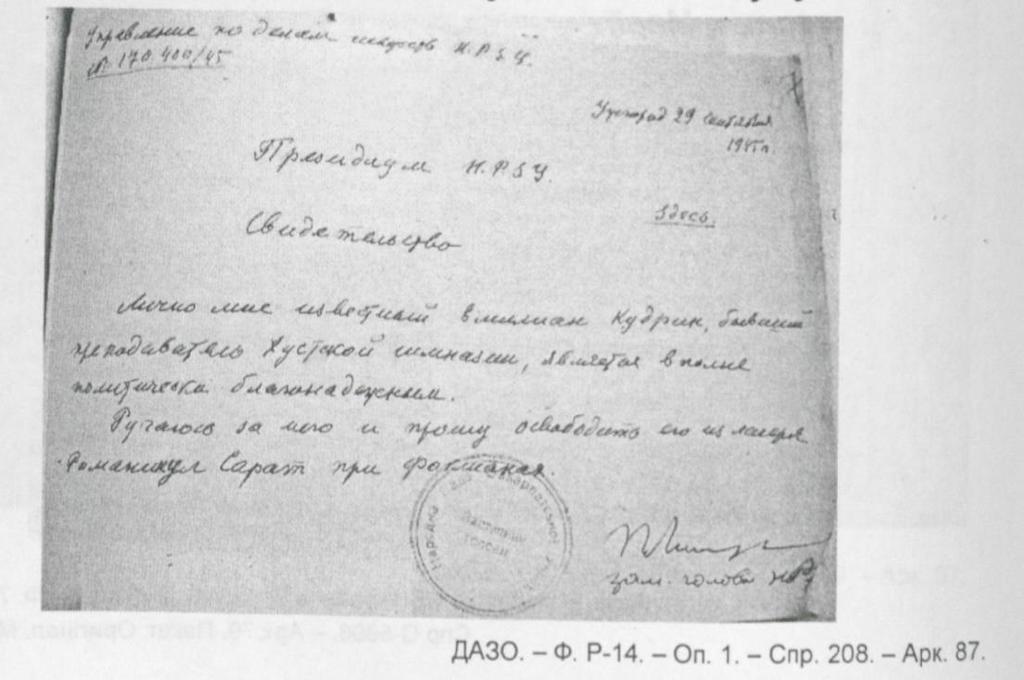 Управление по делам искусств Н.Р.З.У.
№ 170.400/45
Ужгород 29 сентября
1945 г.
Президиум Н.Р.З.У.
Здесь.
Свидетельство
Лично мне известный Эмилиан Кудрик, бывший
преподаватель Хустской гимназии, является вполне
политически благонадежным.
Ручаюсь за него и прошу освободить его из лагеря
Романикул Сарат при Фокшанах.
Народна Рада Закарпатської
Заступник
голови
зам. голова НР
ДАЗО. – Ф. Р-14. – Оп. 1. – Спр. 208. – Арк. 87.